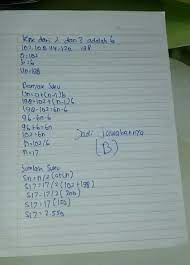 KPK dari 2 dan 3 adalah 6
102, 108, 114, 120 ... 198
a = 102
b = 6
Un = 198
Banyak Suku
Un = a + (n-1) b
198 = 102 + (n-1) 6
198 - 102 = (n-1) 6
96 = 6n - 6
96 + 6 = 6n
102 = 6n
n = 102/6
n = 17
Jadi jawabannya
(B)
Jumlah Suku
Sn = n/2 (a + Un)
S17 = 17/2 (102 + 198)
S17 = 17/2 (300)
S17 = 17 (150)
S17 = 2.550